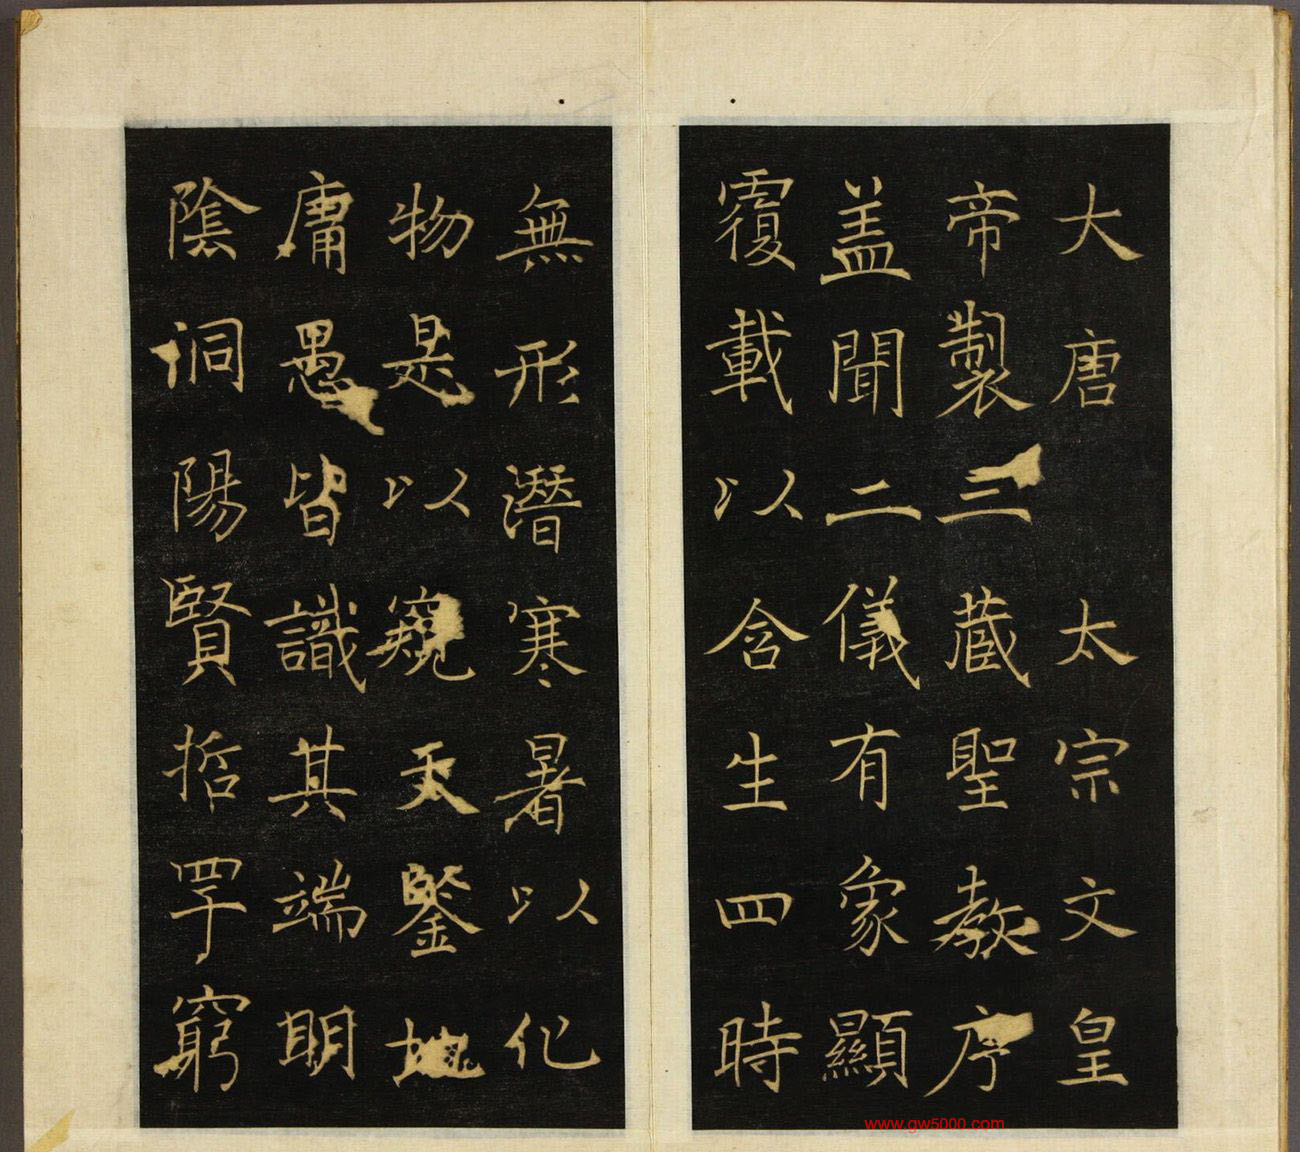 大唐太宗文皇
帝製三藏聖教序
盖聞二儀有象顯
覆載以含生四時
無形潛寒暑以化
物是以窺天鑒地
庸愚皆識其端明
陰洞陽賢哲罕窮
www.gw5000.com